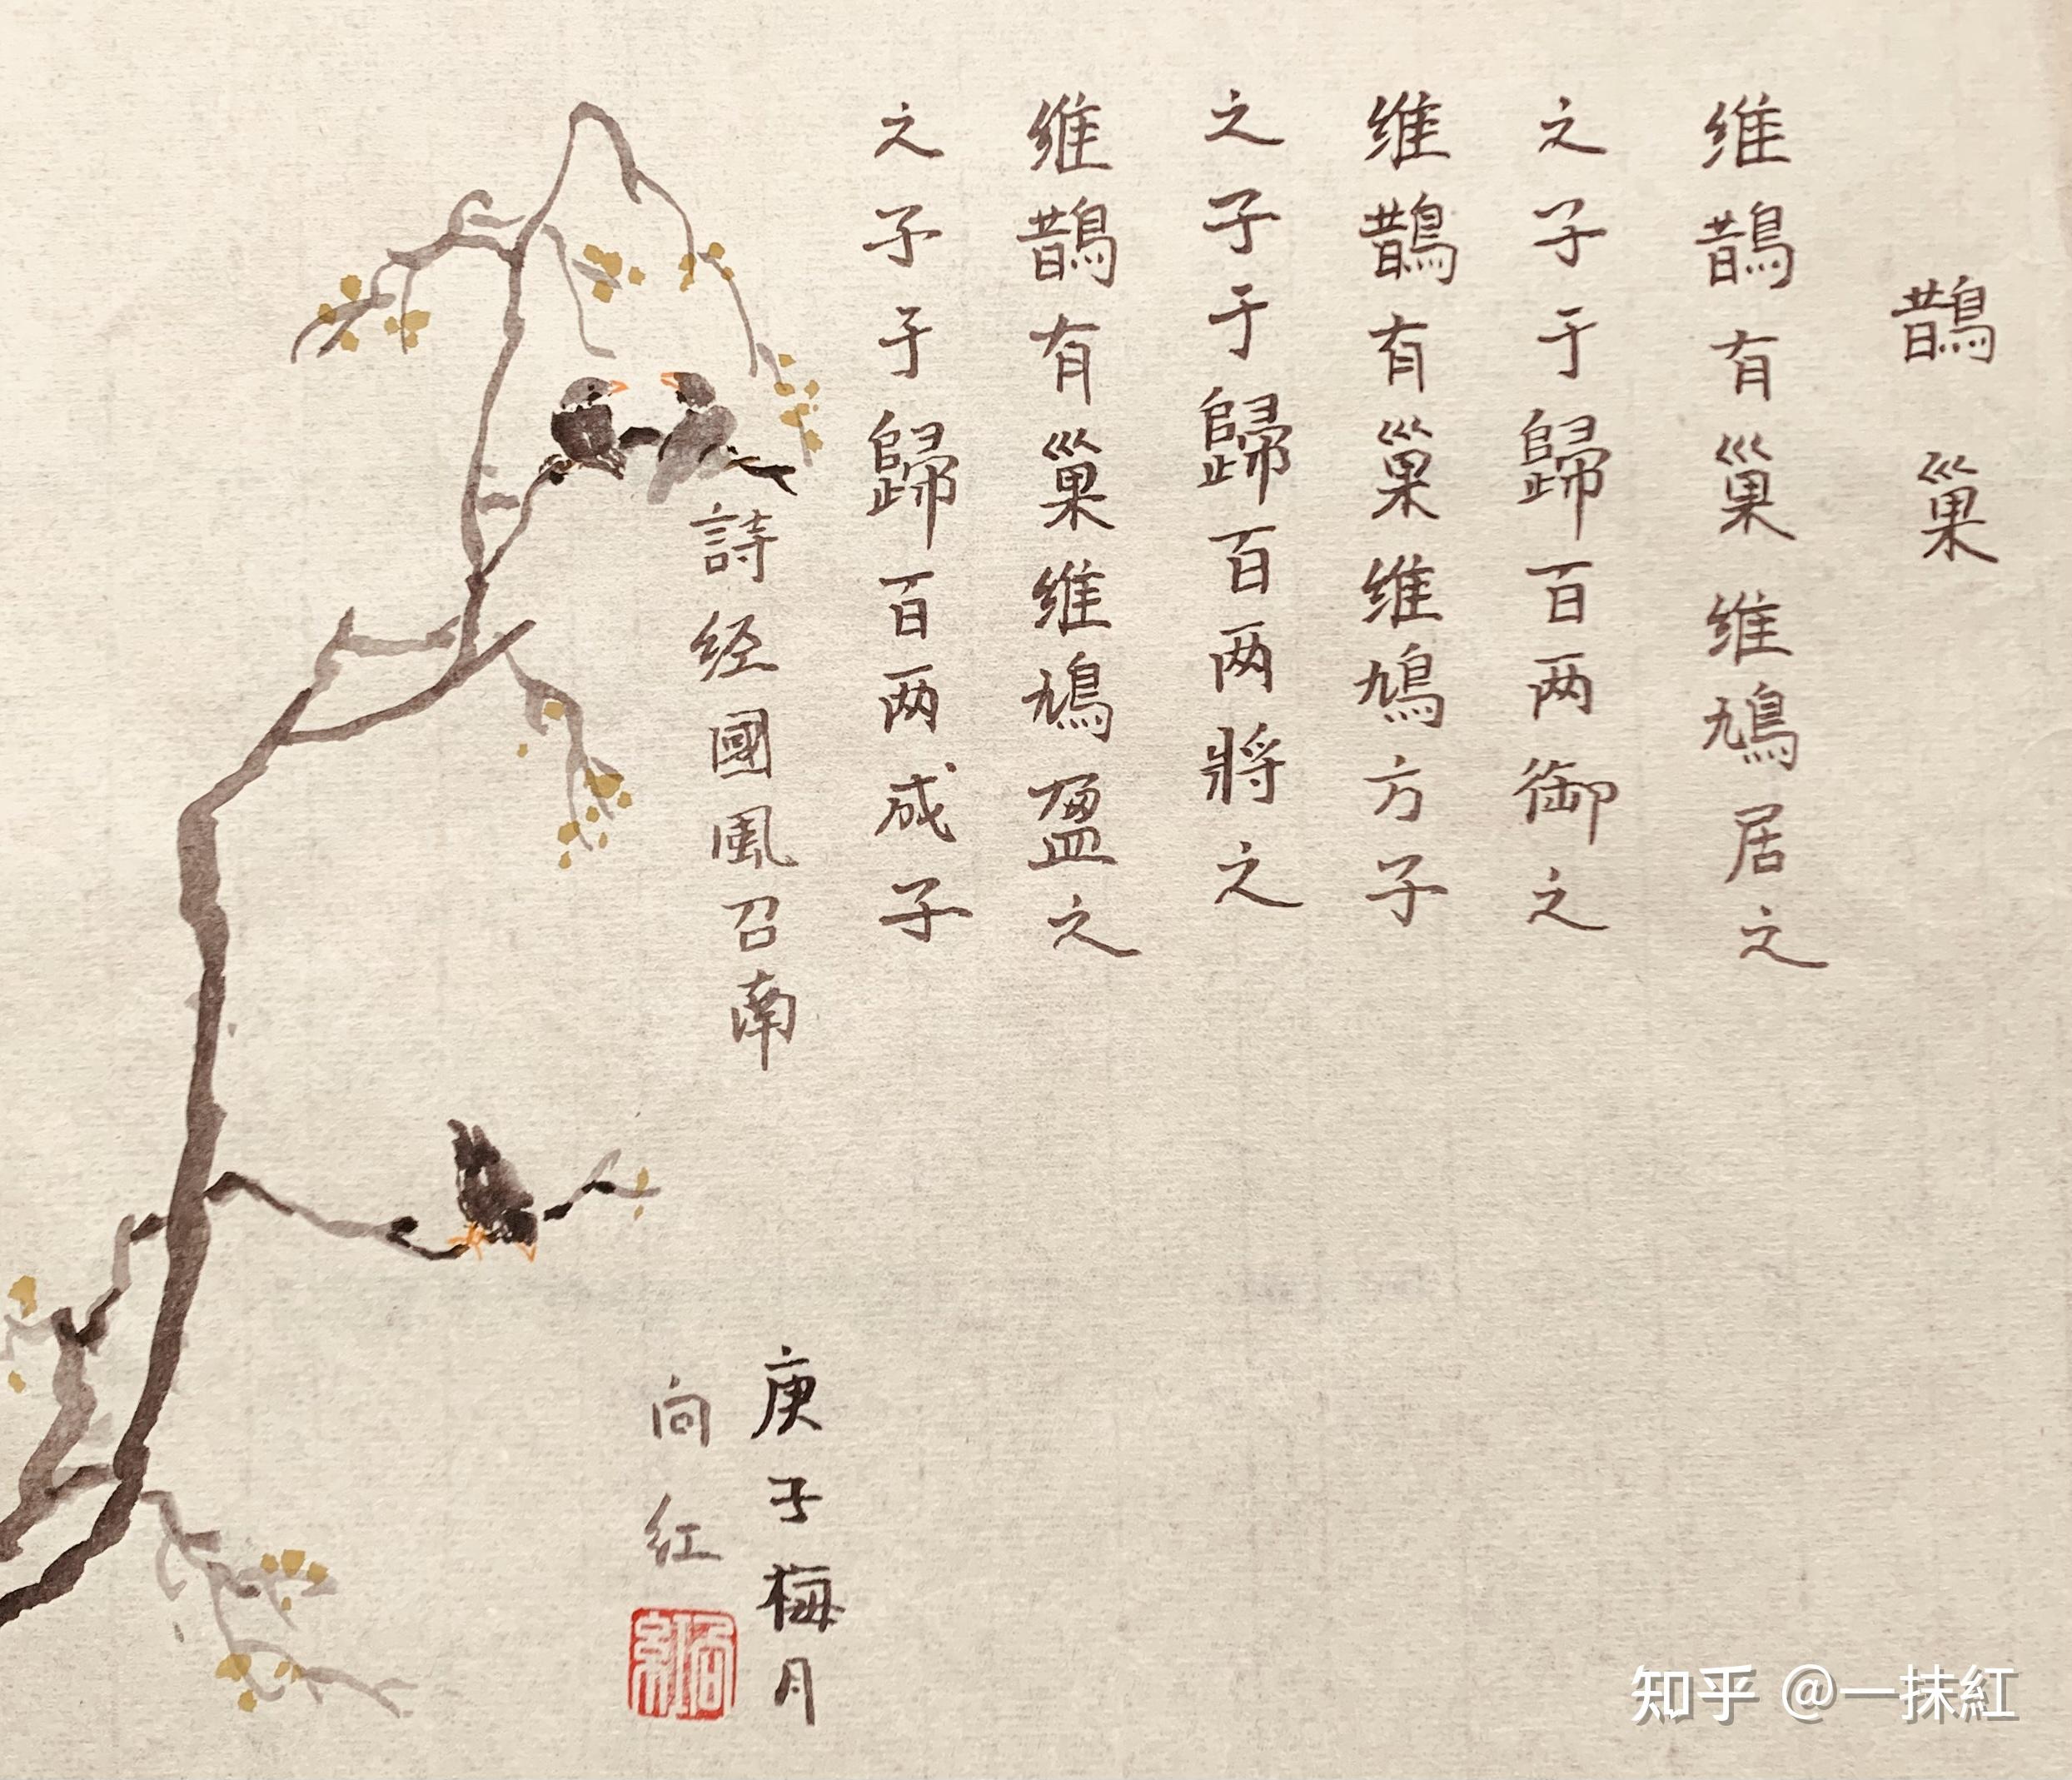 鵲巢
维鵲有巢维鳩居之
之子于歸百两御之
维鵲有巢维鳩方子
之子于歸百两將之
维鵲有巢维鳩盈之
之子于歸百两成子
詩经國風召南
庚子梅月
向红
知乎 @一抹紅